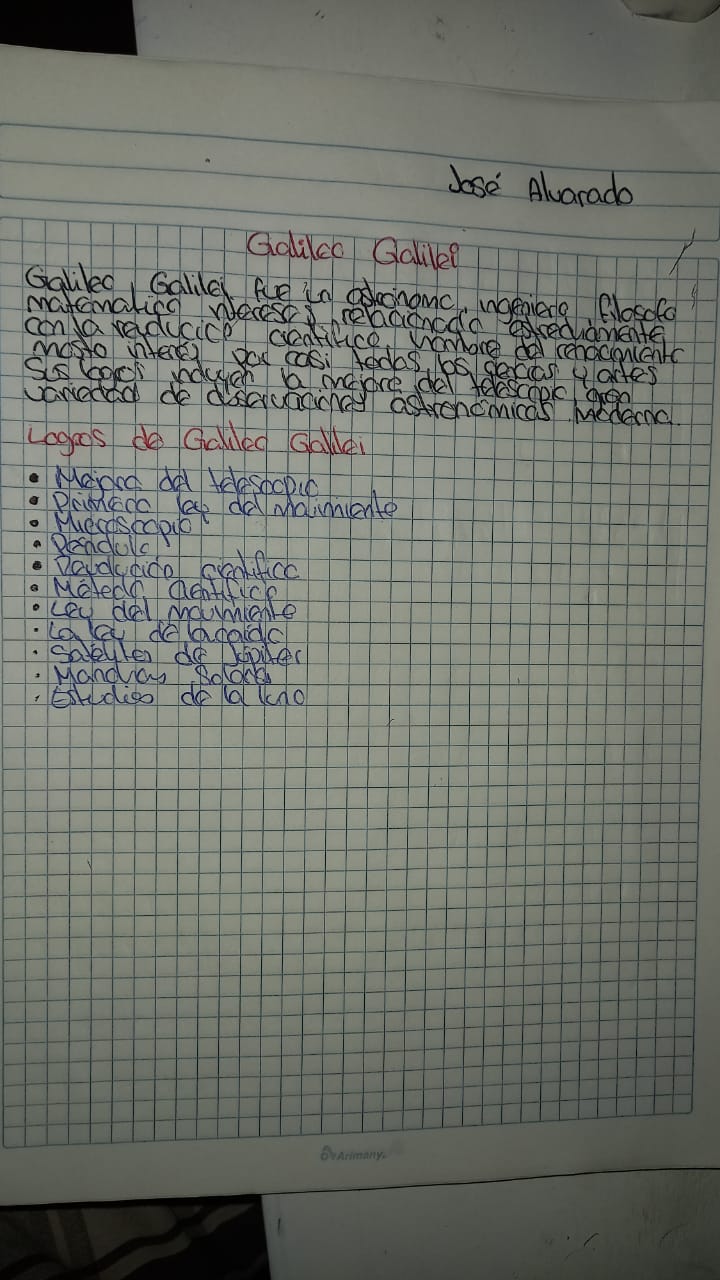 José Alvarado
Galileo Galilei
Galileo Galilei fue un astronomo, ingeniero, filosofo
matematico relacionado estrechamente
con la científico, hombre del renacimiento
mostro interes por casi todas las y artes
Sus logros incluyen la mejora del telescopio gran
variedad de observaciones astronómicas Moderna.
Logros de Galileo Galilei
• Mejora del telescopio
• Primera ley del Movimiento
• Microscopio
• Pendulo
• científica
• Método científico
• Ley del movimiento
• La ley de la caída
• de Júpiter
• Solares
• Estudios de la
Arimany.